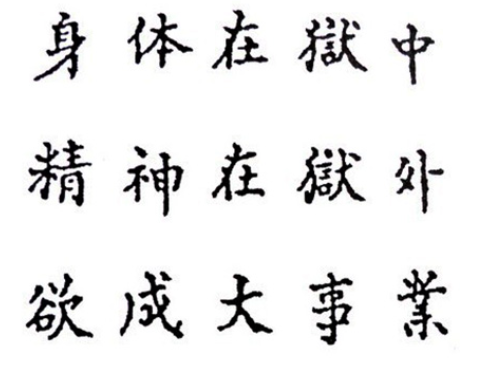 身体在獄中
精神在獄外
欲成大事業